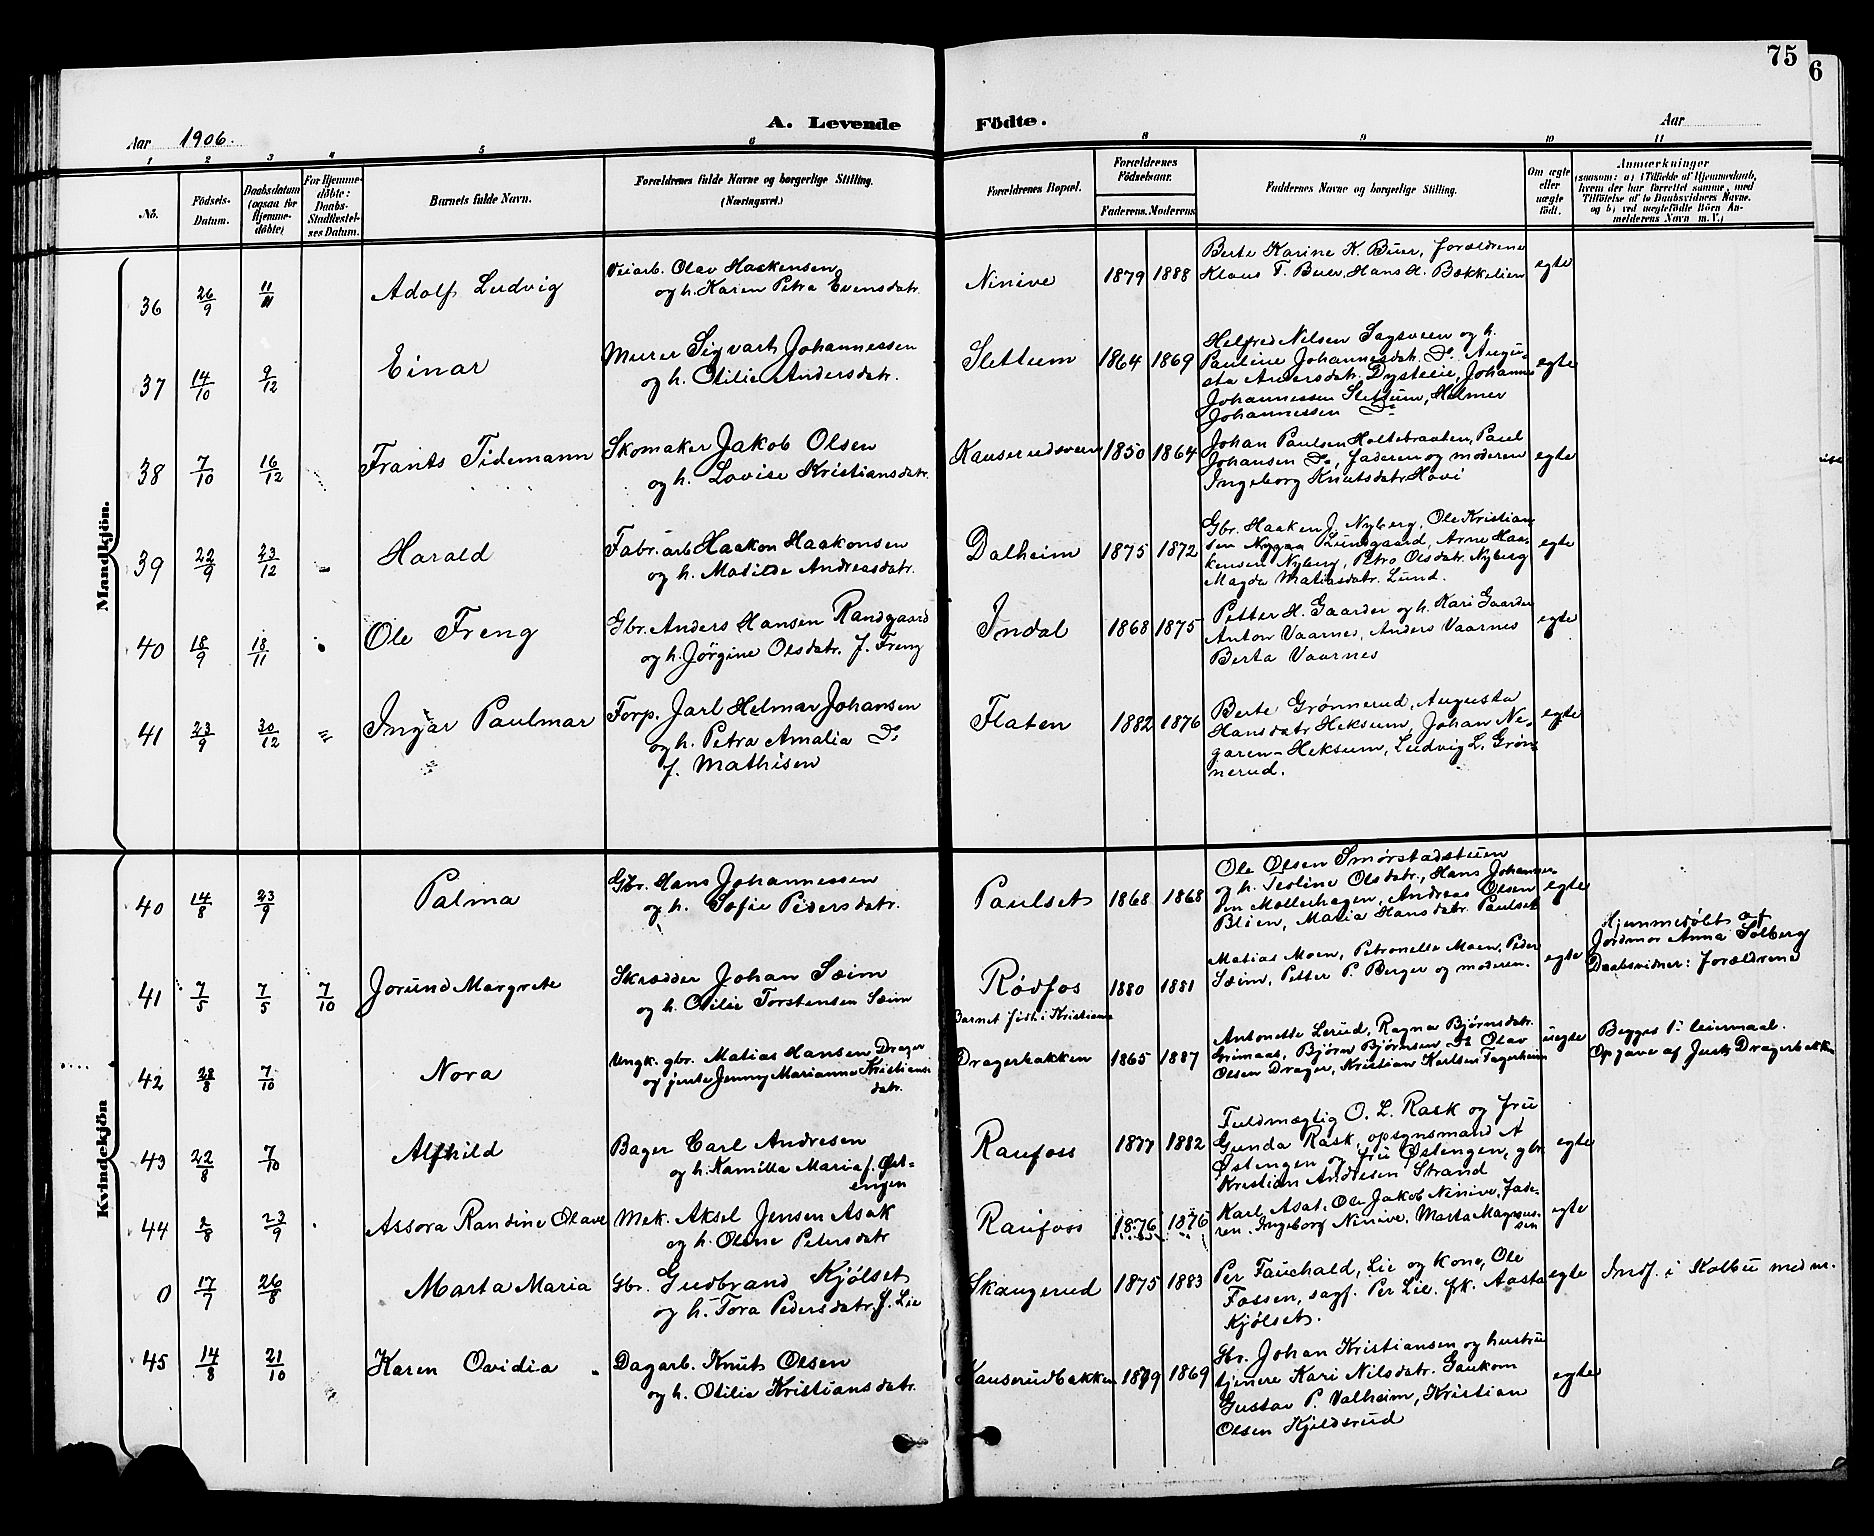 75
6
A. Levende Födte.
Aar 1906.
Aar
1 2 3 4 5 6 8 9 10 11
No.
Födsels-Datum.
Daabsdatum (ogsaa for Hjemme-döbte)
For Hjemme-döbte: Daabs-Stadfæstel-ses Datum.
Barnets fulde Navn.
Forældrenes fulde Navne og borgerlige Stilling. (Næringsvei.)
Forældrenes Bopæl.
Forældrenes Födselsaar.
Faderens. Moderens
Faddernes Navne og borgerlige Stilling.
Om ægte eller uægte födt.
Anmærkninger
(saasom: a) i Tilfælde af Hjemmedaab, hvem der har forrettet samme, med Tilföielse af to Daabsvidners Navne. og b) ved uægtefödte Börn An-melderens Navn m. V.)
Mandkjön.
36 26/9 11/11 Adolf Ludvig
Veiarb. Olav Haakensen
og h. Karen Petra Evensdatr.
Ninive 1879 1888
Berte Karine K. Buer, forældrene
Klaus T. Buer, Hans H. Bakkelien
egte
37 14/10 9/12 Einar
Murer Sigvart Johannessen
og h. Otilie Andersdatr.
Slettum 1864 1869
Helfred Nilsen Sagsveen og h.
Pauline Johannesdatr. Do. Augu-
sta Andersdatr. Dysteeie, Johannes
Johannessen Slettum, Helmer
Johannessen Do.
egte
38 7/10 16/12 Frants Tidemann
Skomaker Jakob Olsen
og h. Lovise Kristiansdatr.
Kauserudsveen 1850 1864
Johan Paulsen Holtebraaten, Paul
Johansen Do, faderen og moderen
Ingeborg Knutsdatr. Hovi
egte
39 22/9 23/12 Harald
Fabr. arb. Haakon Haakonsen
og h. Matilde Andreasdatr.
Dalheim 1875 1872
Gbr. Haaken J. Nyberg, Ole Kristian-
sen Lundgaard, Arne Haa-
kensen Nyberg, Petra Olsdatr. Nyberg
Magda Matiasdatr. Lund.
egte
40 18/9 18/11 Ole Freng
Gbr. Anders Hansen Randgaard
og h. Jørgine Olsdatr. f. Freng
Indal 1868 1875
Petter H. Gaarder og h. Kari Gaarder
Anton Vaarnes, Anders Vaarnes
Berta Vaarnes
egte
41 23/9 30/12 Ingar Paulmar
Forp. Jarl Helmar Johansen
og h. Petra Amalia Do
f. Mathisen
Flaten 1882 1876
Berte Grønnerud, Augusta
Hansdatr. Heksum, Johan Ne-
garen-Heksum, Ludvig L. Grøn-
nerud.
egte
Kvindekjön
40 14/8 23/9 Palma
Gbr. Hans Johannessen
og h. Sofie Pedersdatr.
Paulset 1868 1868
Ole Olsen Smørstadstuen
og h. Teoline Olsdatr., Hans Johannes-
sen Mollerhagen, Andreas Olsen
Blien, Maria Hansdatr. Paulset
egte
41 7/5 7/5 7/10 Jorund Margrete
Skrædder Johan Sæim
og h. Otilie Torstensen Sæim
Rødfos 1880 1881
Barnet født i Kristiania
Matias Moen, Petronelle Moen, Peder
Sæim, Petter P. Berger og moderen.
egte
Hjemmedøbt af
Jordmor Anna Solberg
Daabsvidner: Forældrene
42 28/8 7/10 Nora
Ungk. gbr. Matias Hansen Drager
og jente Jenny Marianne Kristians-
datr.
Dragerbakken 1865 1887
Antonette Lerud, Ragna Bjørnsdatr.
Grimaas, Bjørn Bjørnsen Do Olav
Olsen Drager, Kristian Karlsen Tagerheim
uegte
Begges 1ste leiermaal.
Opgave af Dragerbakken
43 22/8 7/10 Alfhild
Bager Carl Andresen
og h. Kamilla Maria f. Øst-
engen
Raufoss 1877 1882
Fuldmægtig O. L. Rask og fru
Gunda Rask, opsynsmand A
Østengen og fru Østengen, gbr.
Kristian Andresen Strand
egte
44 2/8 23/9 Assora Randine Olave
Mek. Aksel Jensen Asak
og h. Oline Petersdatr
Raufoss 1876 1876
Karl Asak, Ole Jakob Ninive, fade-
ren. Ingeborg Ninive, Marta Magnus-
sen
egte
0 17/7 26/8 Marta Maria
Gbr. Gudbrand Kjølset
og h. Tora Pedersdatr. f. Lie
Skangerud 1875 1883
Per Fauchald, Lie og kone, Ole
Fossen, sagf. Per Lie. frk. Aasta
Kjølset.
egte
Indf. i Kolbu med nr.
45 14/8 21/10 Karen Ovidia
Dagarb. Knut Olsen
og h. Otilie Kristiansdatr.
Kauserudbakken 1879 1869
Gbr. Johan Kristiansen og hustru
tjenere Kari Nilsdatr. Gaukom
Gustav P. Valheim, Kristian
Olsen Kjeldsrud
egte